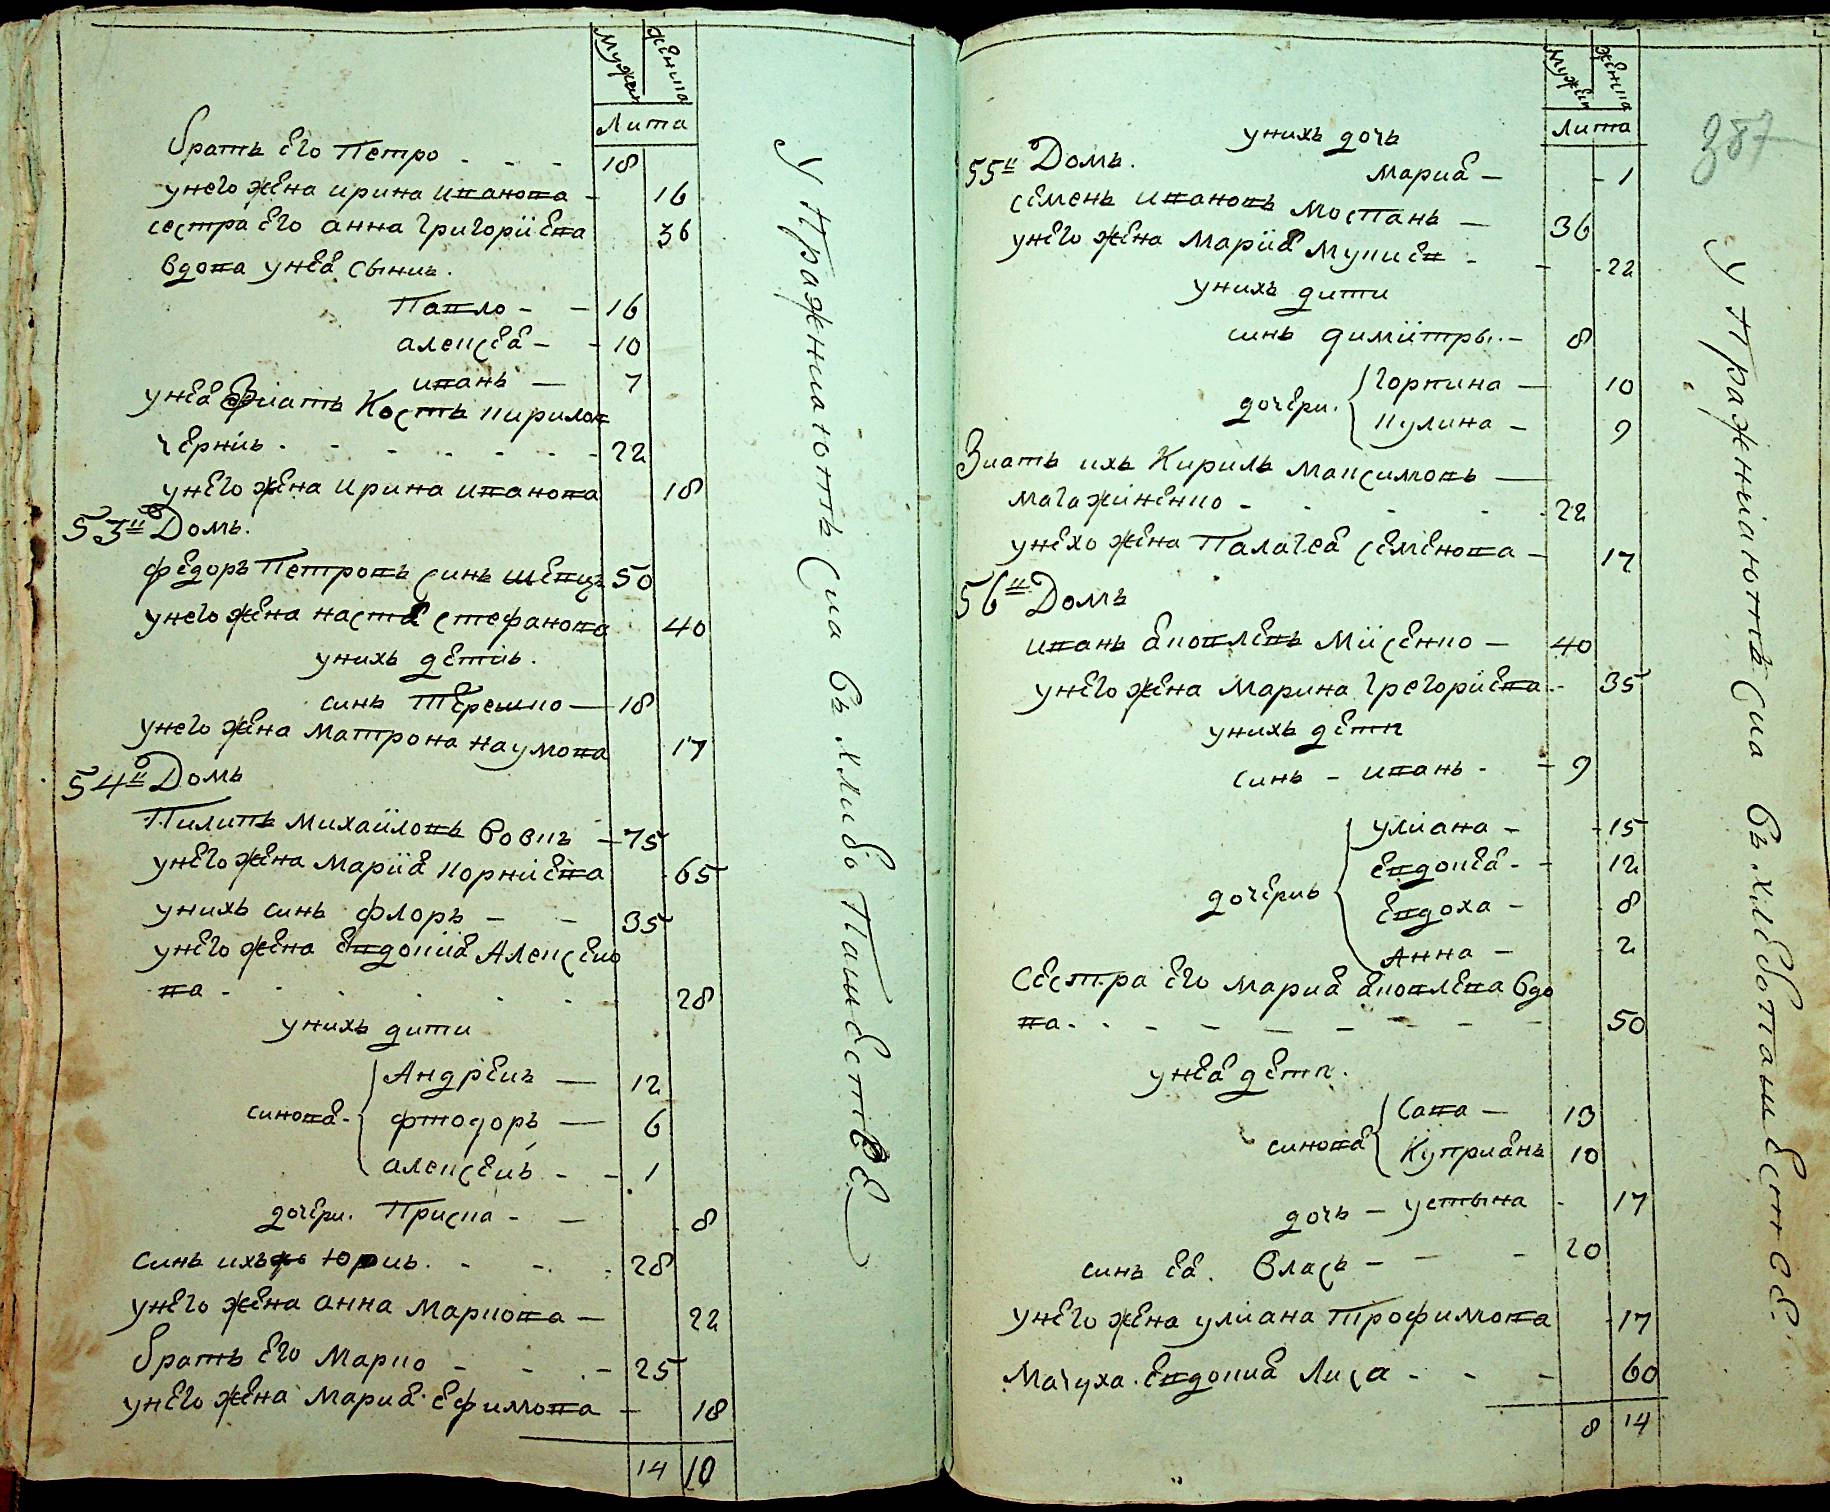 Мужеи женина
Лита
братъ его Петро - - - 18
унего жена ирина иванова - 16
сестра его анна Григориева 36
вдова унея сыни.
Павло - - 16
алексея - - 10
иванъ — 7
унея зиатъ Костъ кирилов
черниъ - - - - - - 22
унего жена ирина иванова 18
53й Домъ.
федоръ Петровъ синъ швецъ 50
унего жена настя стефанова 40
унихъ детиъ.
синъ Терешко — 18
унего жена матрона наумова 17
54й Домъ
Пилипъ михаиловъ вовкъ - 75
унего жена мария корниева 65
унихъ синъ флоръ - - 35
унего жена евдокия Алексеио
ва - - - - - - 28
унихъ дити
Андреиъ — 12
синовя - фтодоръ — 6
алексеиъ - - 1
дочери. Приска - - 8
синъ ихъ Юриъ. - - - 28
унего жена анна маркова - 22
братъ его марко - - - 25
унего жена мария ефимова - 18
14 10
Упражнаютъ сиа въ хлибопашестве
387
Мужеи женина
Лита
унихъ дочъ
мария - - 1
55й Домъ.
семенъ ивановъ мостанъ — 36
унего жена мария мусиев - - 22
унихъ дити
синъ димитры - 8
Горпина — 10
дочери.
кулина - 9
Зиатъ ихъ Кирилъ максимовъ —
магажиненко - - - - 22
унехо жена Палагея семенова - 17
56й Домъ
иванъ яковлевъ мисенко - 40
унего жена марина Грегориева - 35
унихъ дети
синъ - иванъ - - 9
улиана - - 15
евдокея - - 12
дочериъ
евдоха - 8
Анна - 2
Сестра его мария яковлева вдо
ва - - - - - - - 50
унея дети.
Сава — 13
синовя
Куприянъ 10
дочъ - устына - 17
синъ ея. Власъ - - - 20
унего жена улиана трофимова - 17
мачуха. евдокия Лиса - - - 60
8 14
Упражниаютъ сиа въ хлебопашестве.